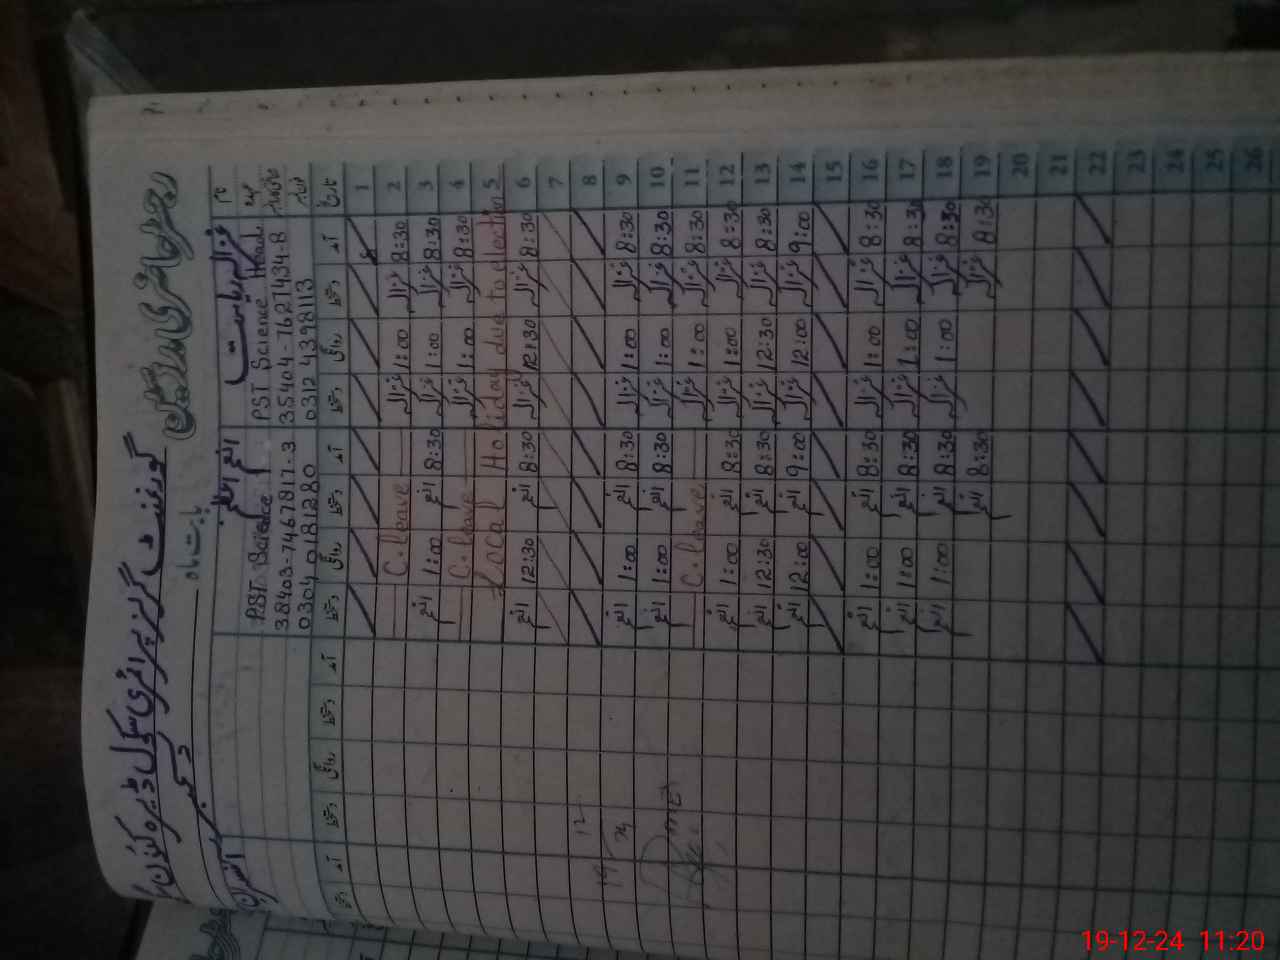 رجسٹر حاضری مدرسین
گورنمنٹ گرلز پرائمری سکول
بابت ماہ دسمبر
نام غزالہ ریاست انعم
PST Science Head. PST Science
35404-7627434-8 38403-7467817-3
0312 4398113 0304 0181280
تاریخ آمد دستخط روانگی دستخط آمد دستخط روانگی دستخط آمد دستخط روانگی دستخط آمد دستخط
1
2 8:30 غزالہ 1:00 غزالہ C.leave
3 8:30 غزالہ 1:00 غزالہ 8:30 انعم 1:00 انعم
4 8:30 غزالہ 1:00 غزالہ C.leave
5 Local Holiday due to election
6 8:30 غزالہ 12:30 غزالہ 8:30 انعم 12:30 انعم
7
8
9 8:30 غزالہ 1:00 غزالہ 8:30 انعم 1:00 انعم
10 8:30 غزالہ 1:00 غزالہ 8:30 انعم 1:00 انعم
11 8:30 غزالہ 1:00 غزالہ C.leave
12 8:30 غزالہ 1:00 غزالہ 8:30 انعم 1:00 انعم
13 8:30 غزالہ 12:30 غزالہ 8:30 انعم 12:30 انعم
14 9:00 غزالہ 12:00 غزالہ 9:00 انعم 12:00 انعم
15
16 8:30 غزالہ 1:00 غزالہ 8:30 انعم 1:00 انعم
17 8:30 غزالہ 1:00 غزالہ 8:30 انعم 1:00 انعم
18 8:30 غزالہ 1:00 غزالہ 8:30 انعم 1:00 انعم
19 8:30 غزالہ 8:30 انعم
20
21
22
23
24
25
26
19-12-24 11:20